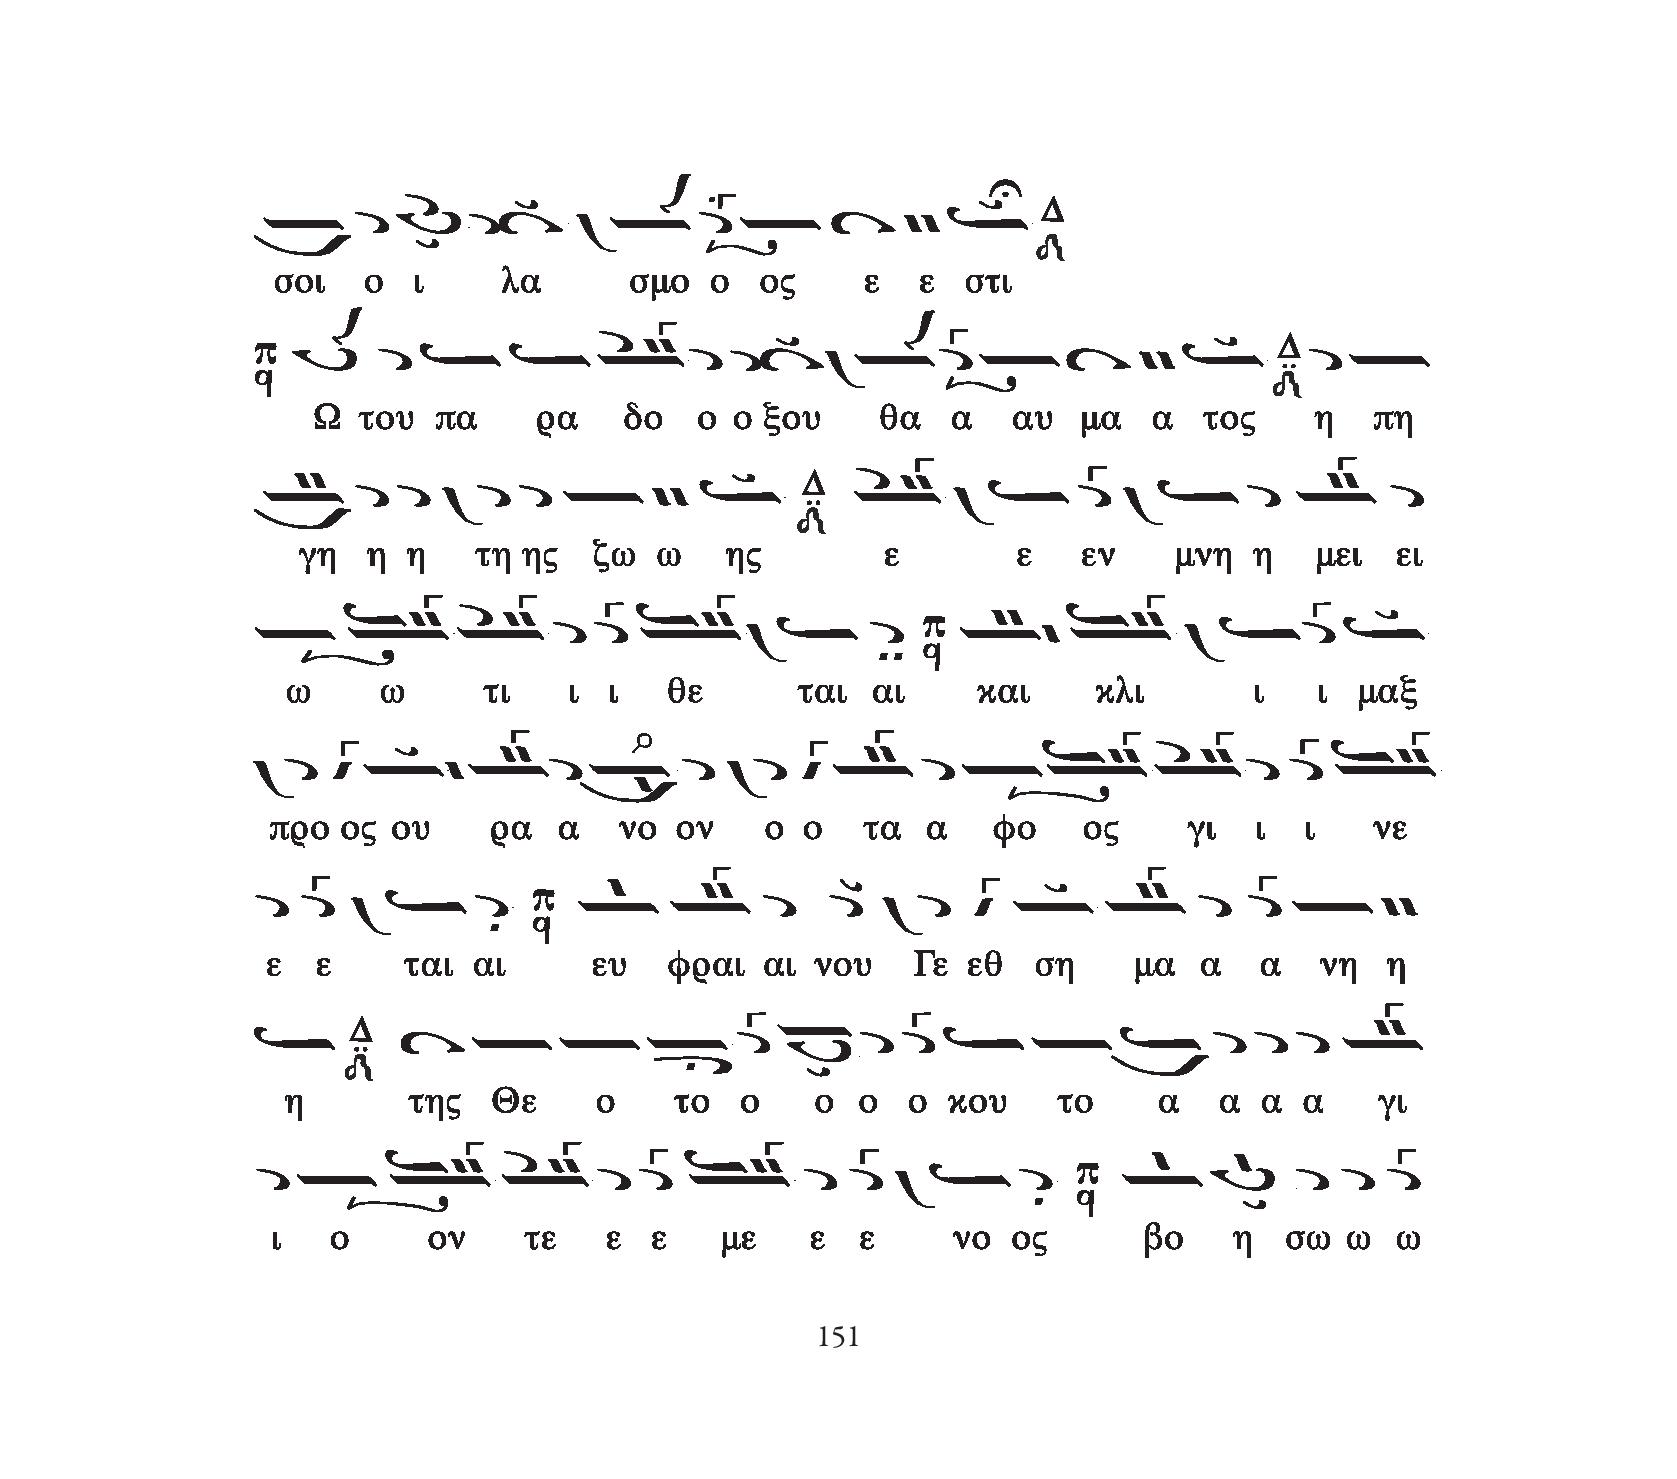 σοι ο ι λα σμο ο ος ε ε στι
Ω του πα ρα δο ο ο ξου θα α αυ μα α τος η πη
γη η η τη ης ζω ω ης ε ε εν μνη η μει ει
ω ω τι ι ι θε ται αι και κλι ι ι μαξ
προ ος ου ρα α νο ον ο ο τα α φο ος γι ι ι νε
ε ε ται αι ευ φραι αι νου Γε εθ ση μα α α νη η
η της Θε ο το ο ο ο ο κου το α α α α γι
ι ο ον τε ε ε με ε ε νο ος βο η σω ω ω
151